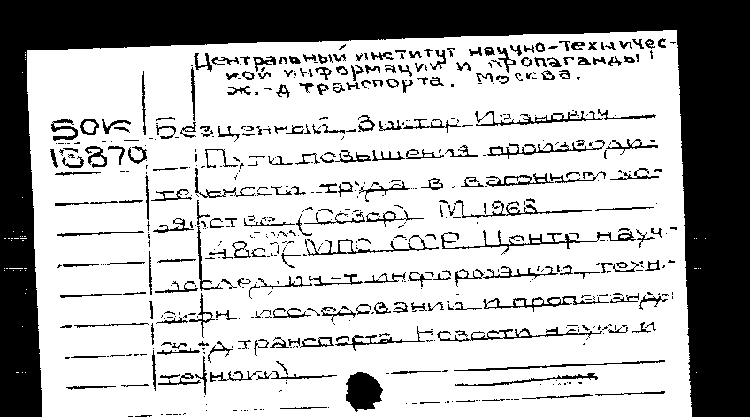 Центральный институт научно-техничес-
кой информации и пропаганды
ж.-д транспорта. Москва.
50К Безценный, Виктор Иванович.
18870 Пути повышения производи-
тельности труда в вагонном хо-
зяйстве. (Обзор) М. 1968
48с. (МПС СССР. Центр науч.-
исслед. ин-т информации, техн.-
экон. исследований и пропаганды
ж.-д транспорта. Новости науки и
техники).